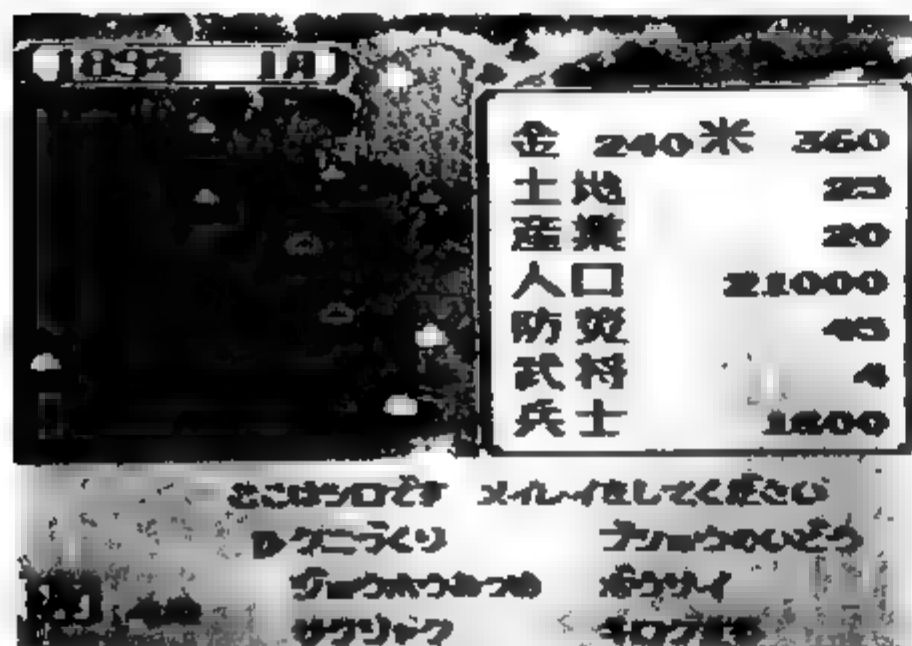 金 240 米 360
土地 25
産業 20
人口 21000
防災 45
武将 4
兵士 1600
ここはシロです メイレイをしてください
▶クニづくり ブショウのいどう
ジョウホウあつめ ボウサイ
サクリャク キロク